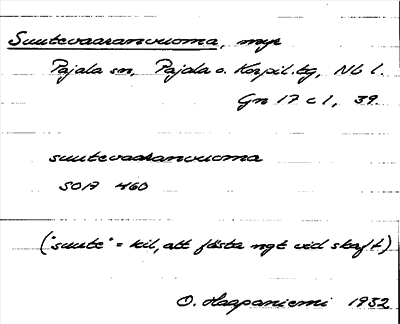 Suutevaaranvuoma, myr
Pajala sn, Pajala o. Korpil. tg, Nb l.
Gn 17 c 1, 39.
suutevaaranvuoma
SOA 460
("suute" = kil, att fästa ngt vid skaft)
O. Haapaniemi 1932